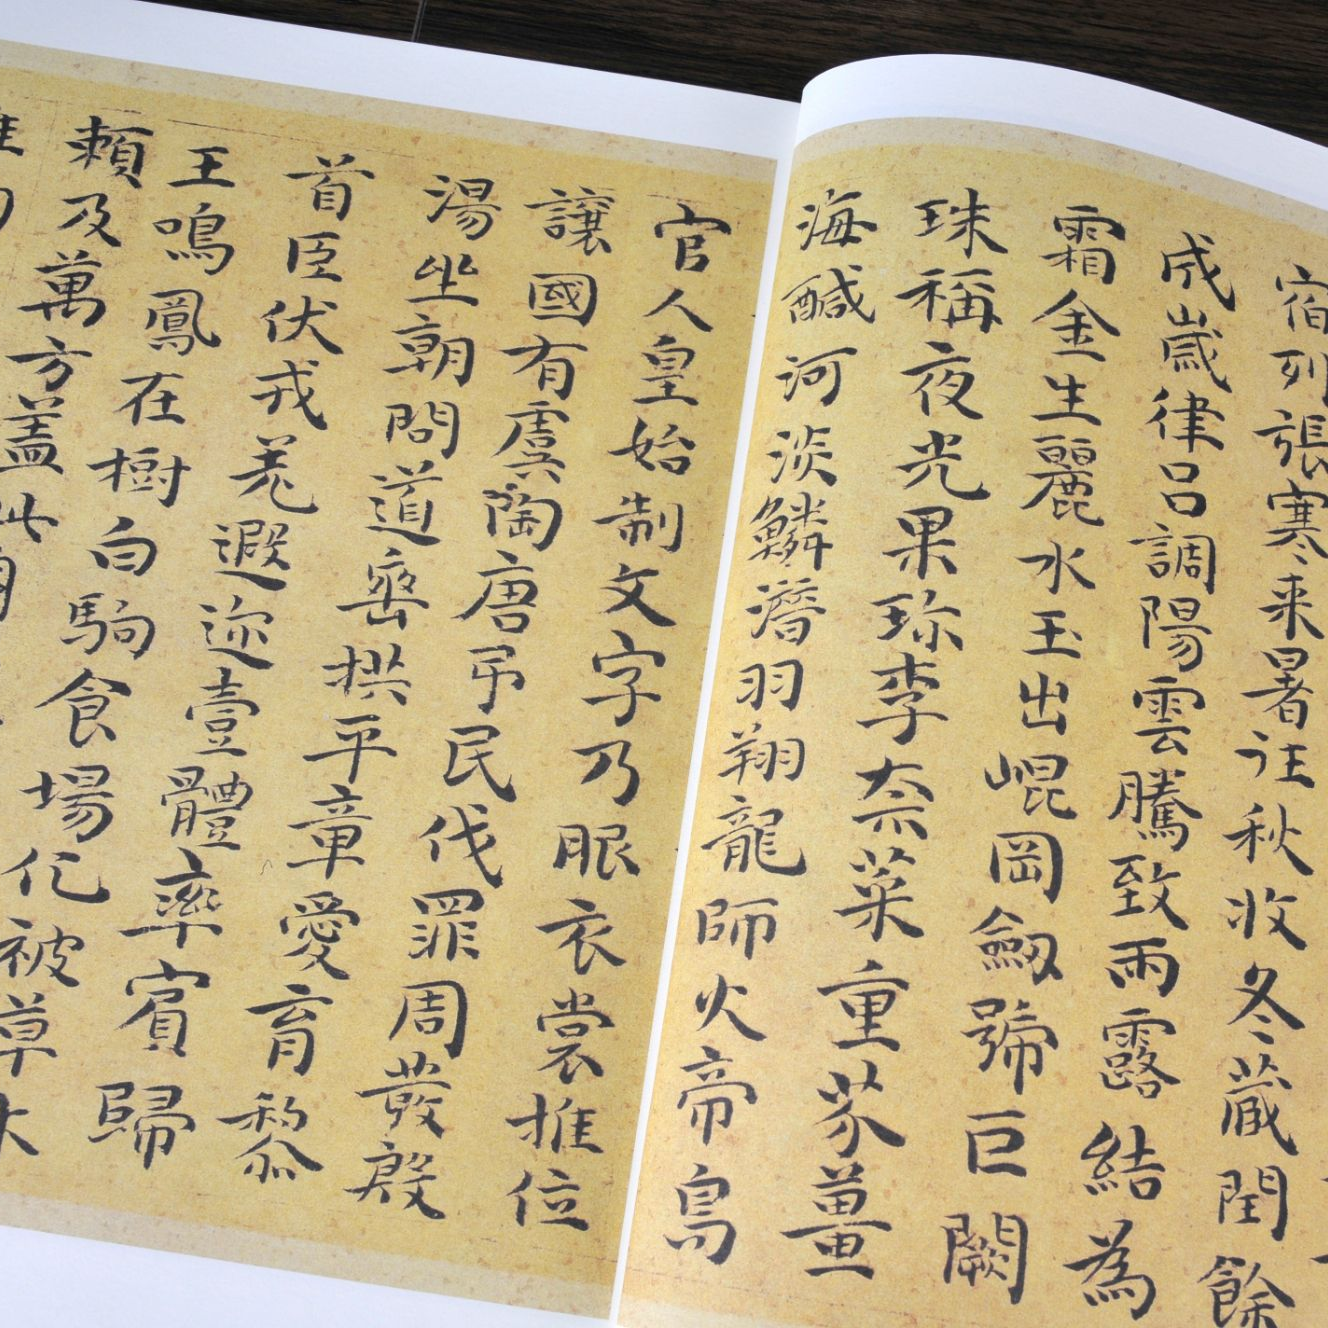 宿列張寒来暑往秋收冬蔵閏餘
成歲律呂調陽雲騰致雨露結為
霜金生麗水玉出崐岡劔號巨闕
珠稱夜光果珎李柰菜重芥薑
海醎河淡鱗潛羽翔龍師火帝鳥
官人皇始制文字乃服衣裳推位
讓國有虞陶唐弔民伐罪周發殷
湯坐朝問道垂拱平章愛育黎
首臣伏戎羌遐迩壹體率賓歸
王鳴鳳在樹白駒食場化被草木
賴及萬方盖此